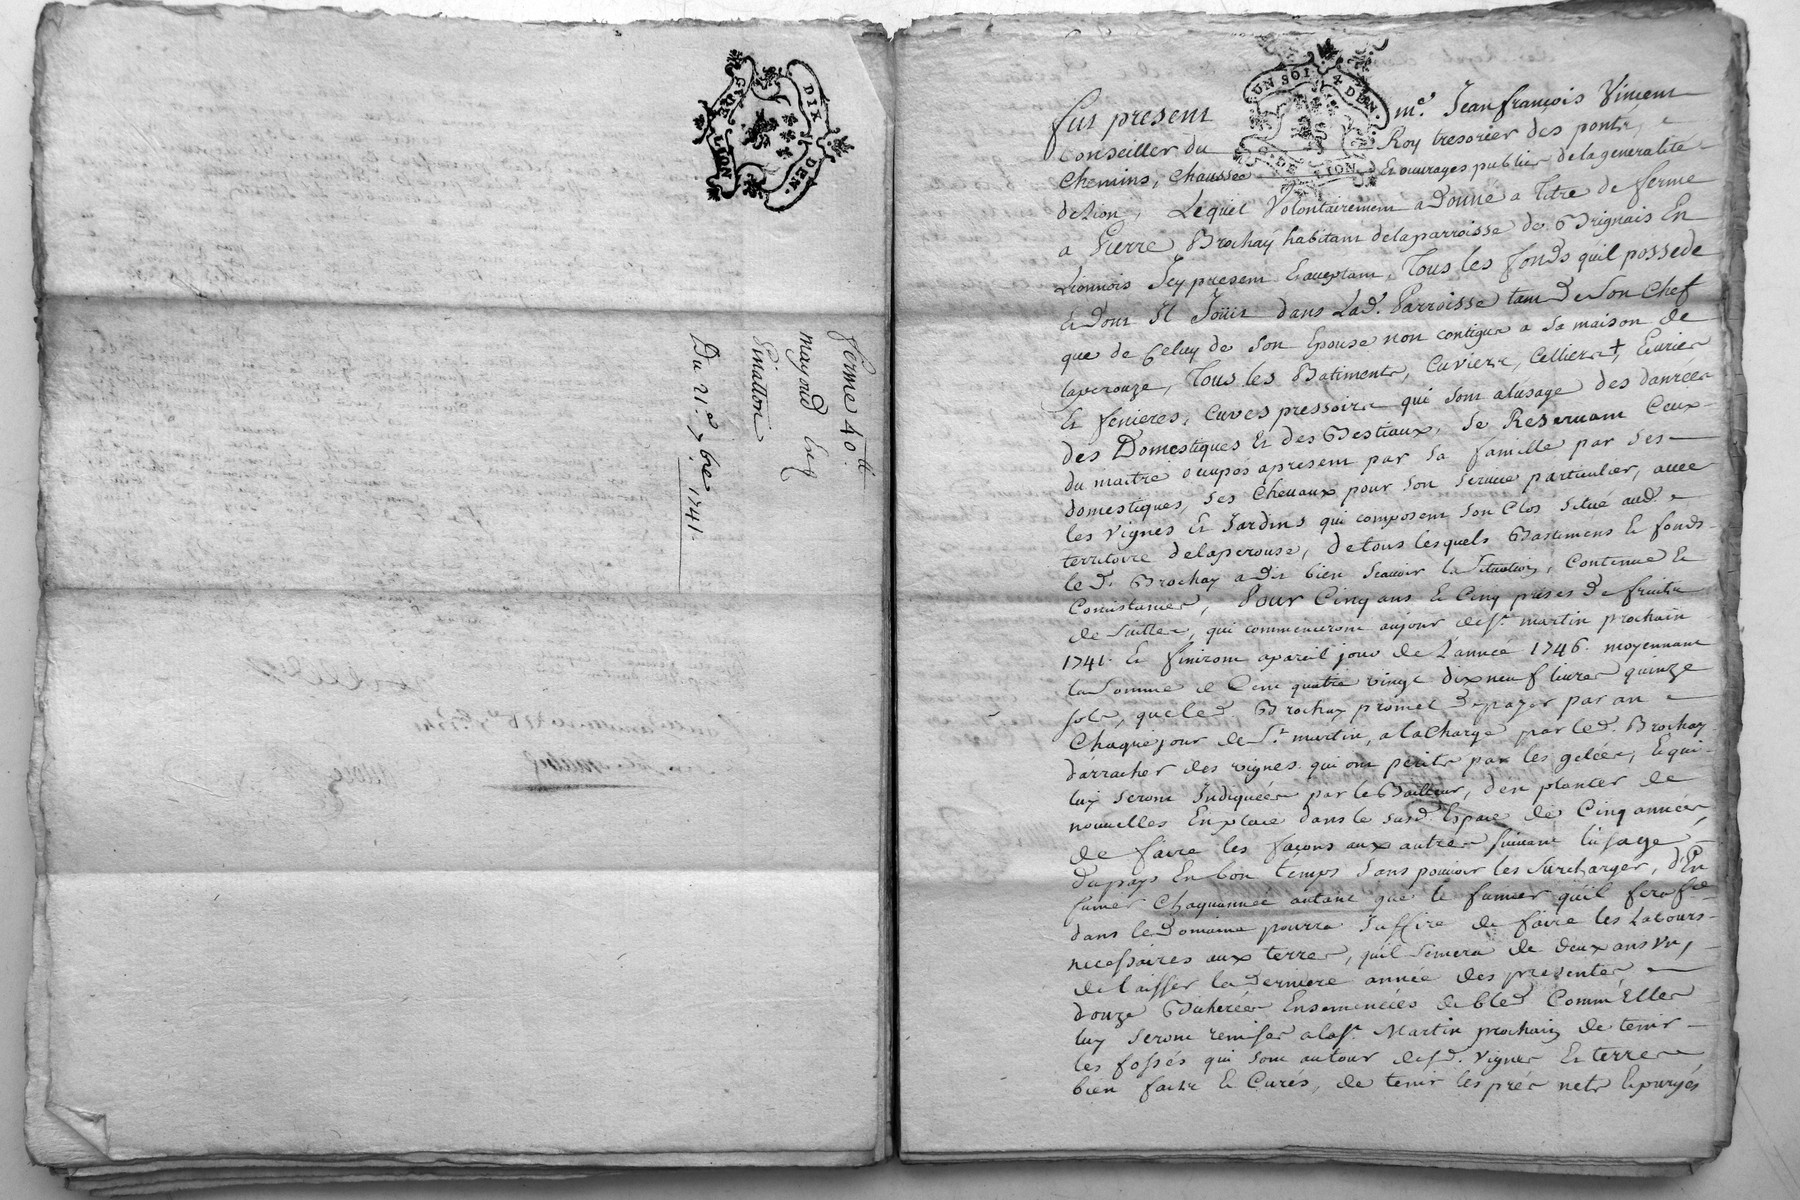 GN. DE LION
DIX DEN.
ferme 40.lt
mayoud
Du 21.e 7.bre 1741.
UN SOL 4 DEN.
G. DE LION
fut present m.e Jean françois Vincent
Conseiller du Roy tresorier des ponts, e
Chemins, Chaussée Et ouvrages publics de la generalité
de Lion, Lequel Volontairement a Donné a Titre de ferme
a Pierre Brochay habitant de la parroisse de Brignais En
Lionnois Icy present Et aceptant, Tous les fonds quil possede
Et Dont Il Joüit dans Lad. Parroisse tant De Son Chef
que de Celuy de Son Epouse non contigus a Sa maison de
laperouze, Tous les Batiments, Cuviers, Celliers +, Ecuries
Et fenieres, Cuves pressoirs qui Sont alusage des danrées
des Domestiques Et des Bestiaux, Se Reservant Ceux
du maitre ocupés apresent par Sa famille par Ses
domestiques, Ses Chevaux pour Son Service particulier, avec
les Vignes Et Jardins qui composent Son Clos Situé aud.
territoire delaperouse, de tous lesquels Bastiments Et fonds
led. Brochay a Dit bien Scavoir la Situation, Contenue Et
Consistance, Pour Cinq ans Et Cinq prises De fruits
de Suitte, qui commenceront aujour de St. martin prochain
1741. Et finiront apareil jour de L'année 1746. moyennant
la Somme de Cent quatre vingt dix neuf livres quinze
sols, que led. Brochay promet De payer par an
Chaque jour de St. martin, a la Charge par led. Brochay
d'arracher des vignes qui ont perits par les gelées, Et qui
luy Seront Indiquées par le Bailleur, d'en planter de
nouvelles En place dans le susd. Espace de Cinq années,
de faire les façons aux autres suivant l'usage
du pays En bon temps Sans pouvoir les Surcharger, d'En
fumer Chaquannée autant que le fumier qu'il fera
dans le Domaine pourra Suffire de faire les Labours
necessaires aux terres, quil Semera de deux ans Un,
de laisser la Derniere année des presentes
douze Bicherées Ensemencées de bled Comm'Elles
luy Seront remises alaSt. Martin prochain de tenir
les fossés qui Sont autour desd. Vignes Et terres
bien faits Et Curés, de tenir les prés nets Epurgés